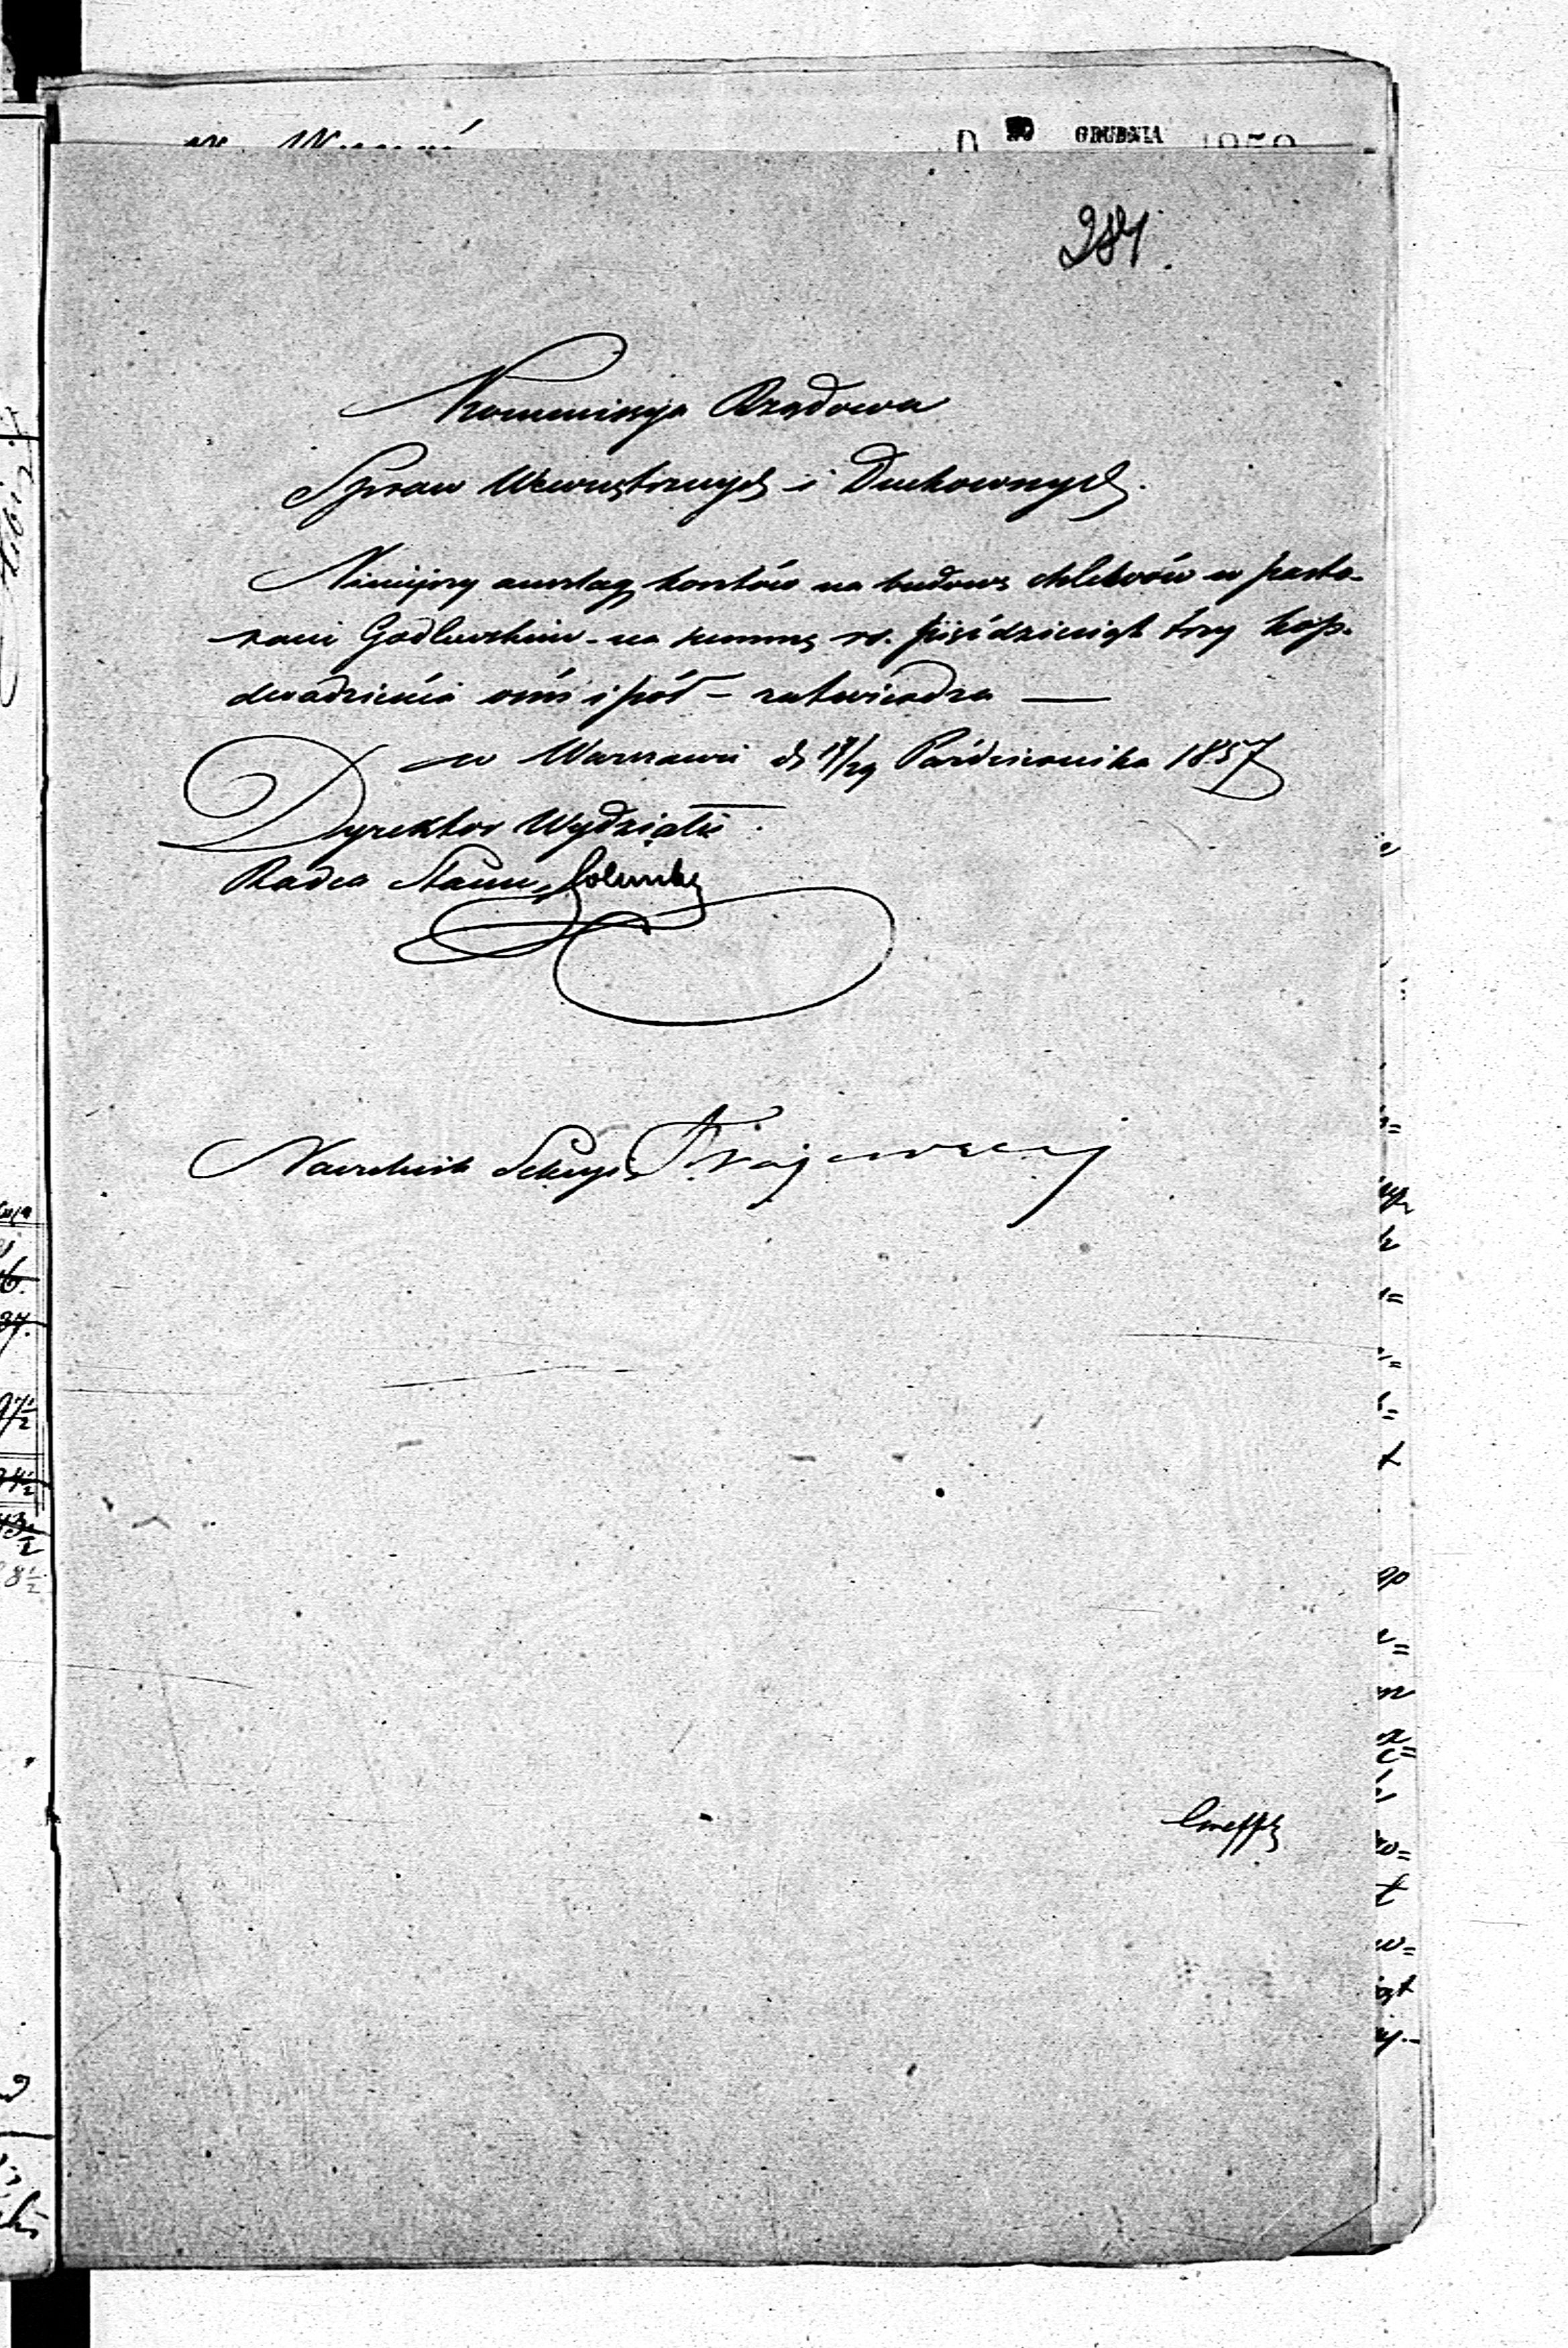 GRUDNIA
284.
Kommissya Rządowa
Spraw Wewnętrznych i Duchownych.
Niniejszy anszlag kosztów na budowę chlewów w pasto-
racie Godlewskim - na summę rs. pięćdziesiąt trzy kop.
dwadzieścia ośm i pół - zatwierdza —
w Warszawie d 17/29 Października 1857
Dyrektor Wydziału
Radca Stanu,
Naczelnik Sekcyi